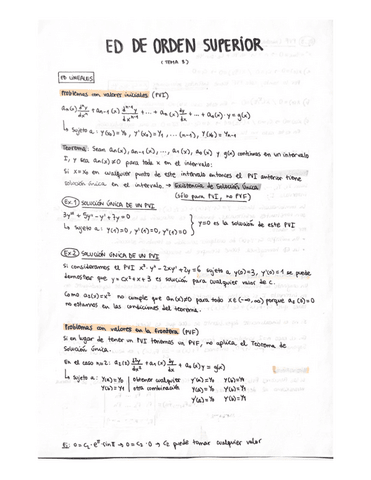 ED DE ORDEN SUPERIOR
(TEMA 3)
ED LINEALES
Problemas con valores iniciales (PVI)
aₙ(x) dⁿy/dxⁿ + aₙ₋₁(x) dⁿ⁻¹y/dxⁿ⁻¹ + ... + a₁(x) dy/dx + ... + a₀(x)·y = g(x)
↳ sujeto a: y(x₀)=y₀, y'(x₀)=y₁, ... (n-1), y(x₀)=yₙ₋₁
Teorema: Sean aₙ(x), aₙ₋₁(x), ..., a₁(x), a₀(x) y g(x) continuos en un intervalo
I, y sea aₙ(x)≠0 para toda x en el intervalo:
Si x=x₀ en cualquier punto de este intervalo entonces el PVI anterior tiene
solución única en el intervalo. → Existencia de Solución Única
(sólo para PVI, no PVF)
Ex.1) SOLUCIÓN ÚNICA DE UN PVI
3y''' + 5y'' - y' + 7y = 0
↳ sujeto a: y(1)=0, y'(1)=0, y''(1)=0 } y=0 es la solución de este PVI
Ex.2) SOLUCIÓN ÚNICA DE UN PVI
Si consideramos el PVI x²·y'' - 2xy' + 2y = 6 sujeto a y(0)=3, y'(0)=1 se puede
demostrar que y = cx² + x + 3 es solución para cualquier valor de C.
Como a₂(x) = x² no cumple que aₙ(x)≠0 para todo x∈(-∞,∞) porque a₂(0)=0
no estamos en las condiciones del teorema.
Problemas con valores en la frontera (PVF)
Si en lugar de tener un PVI tenemos un PVF, no aplica el Teorema de
Solución única.
En el caso n=2: a₂(x) d²y/dx² + a₁(x) dy/dx + a₀(x)y = g(x)
↳ sujeto a: y(a)=y₀ | obtener cualquier y'(a)=y₀ y(b)=y₁
y(b)=y₁ | otra combinación y(a)=y₀ y'(b)=y₁
y'(a)=y₀ y'(b)=y₁
Ej: 0 = C₂·eᵅ·sin π → 0 = C₂·0 → C₂ puede tomar cualquier valor